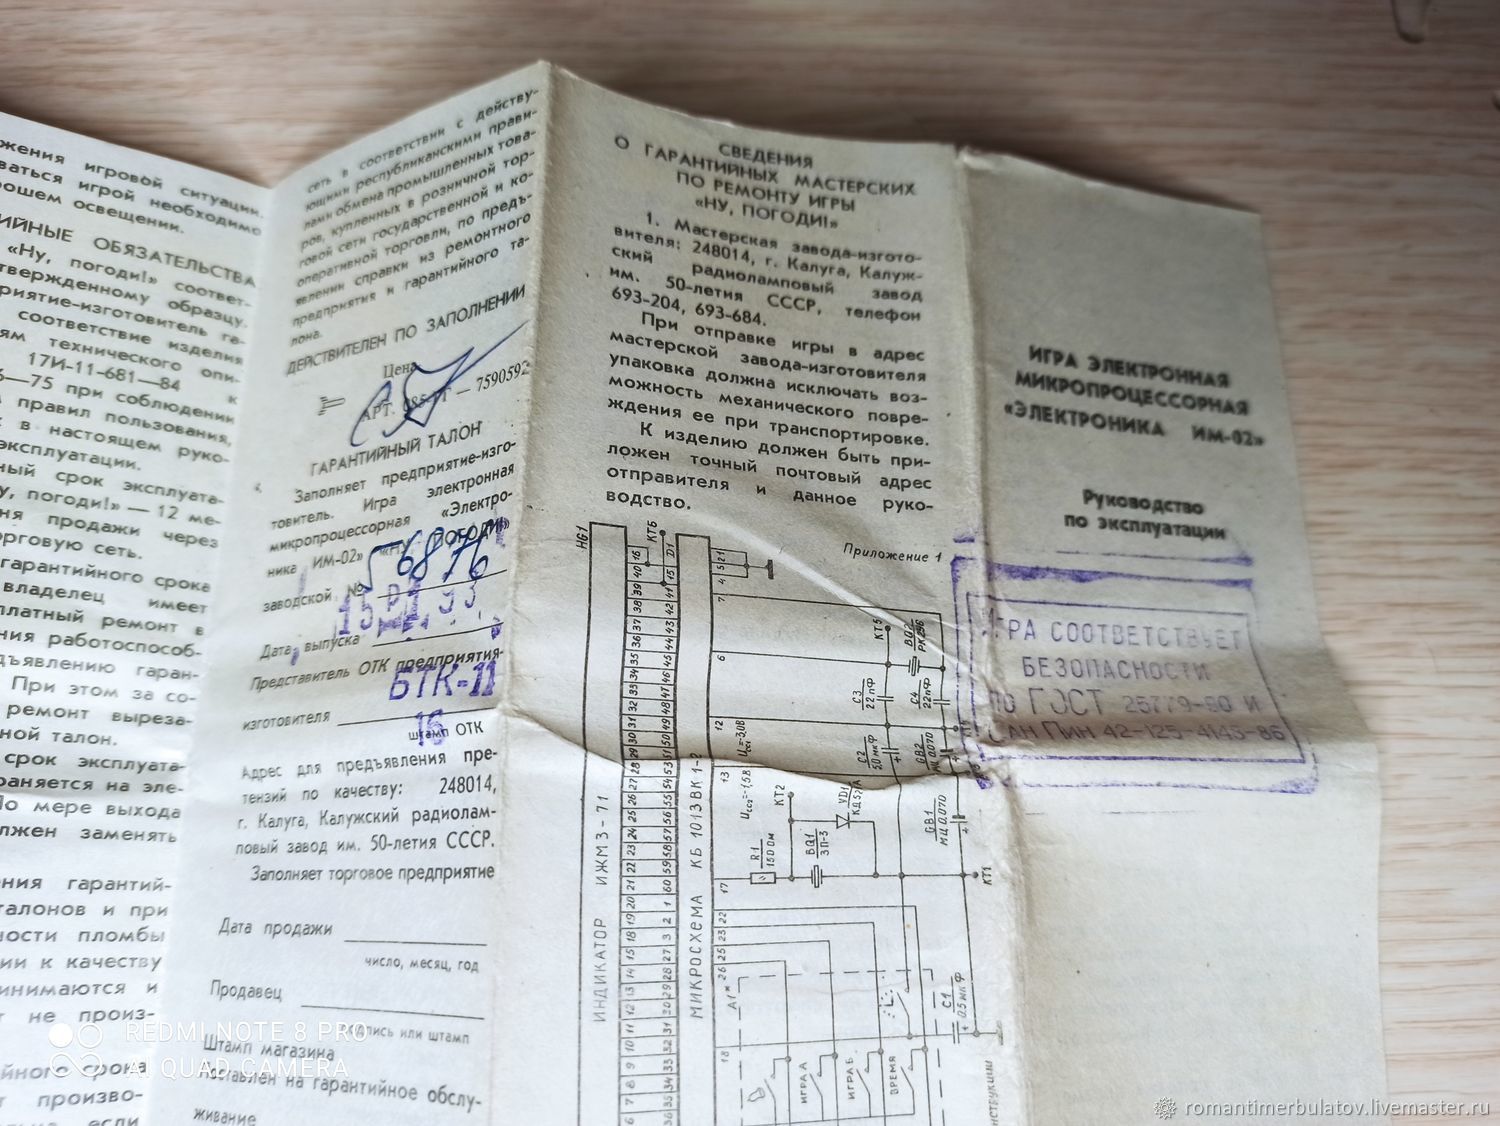 жения игровой ситуации.
ваться игрой необходимо
рошем освещении.
ИЙНЫЕ ОБЯЗАТЕЛЬСТВА
«Ну, погоди!» соответ-
твержденному образцу.
риятие-изготовитель га-
соответствие изделия
ям технического опи-
17И-11-681—84 к
6—75 при соблюдении
правил пользования,
в настоящем руко-
эксплуатации.
ный срок эксплуата-
у, погоди!» — 12 ме-
ня продажи через
орговую сеть.
гарантийного срока
владелец имеет
платный ремонт в
ния работоспособ-
дъявлению гаран-
При этом за со-
ремонт выреза-
ной талон.
срок эксплуата-
раняется на эле-
По мере выхода
лжен заменять
ния гарантий-
талонов и при
ности пломбы
ии к качеству
инимаются и
не произ-
йного срока
произво-
если
сеть в соответствии с действу-
ющими республиканскими прави-
лами обмена промышленных това-
ров, купленных в розничной тор-
говой сети государственной и ко-
оперативной торговли, по предъ-
явлении справки из ремонтного
предприятия и гарантийного та-
лона.
ДЕЙСТВИТЕЛЕН ПО ЗАПОЛНЕНИИ
Цена
АРТ. — 7590592
ГАРАНТИЙНЫЙ ТАЛОН
Заполняет предприятие-изго-
товитель. Игра электронная
микропроцессорная «Электро-
ника ИМ-02» «НУ, ПОГОДИ!»
заводской № 6876
Дата выпуска 15
Представитель ОТК предприятия-
БТК-11
изготовителя
16
штамп ОТК
Адрес для предъявления пре-
тензий по качеству: 248014,
г. Калуга, Калужский радиолам-
повый завод им. 50-летия СССР.
Заполняет торговое предприятие
Дата продажи
число, месяц, год
Продавец
подпись или штамп
Штамп магазина
Поставлен на гарантийное обслу-
живание
СВЕДЕНИЯ
О ГАРАНТИЙНЫХ МАСТЕРСКИХ
ПО РЕМОНТУ ИГРЫ
«НУ, ПОГОДИ!»
1. Мастерская завода-изгото-
вителя: 248014, г. Калуга, Калуж-
ский радиоламповый завод
им. 50-летия СССР, телефон
693-204, 693-684.
При отправке игры в адрес
мастерской завода-изготовителя
упаковка должна исключать воз-
можность механического повре-
ждения ее при транспортировке.
К изделию должен быть при-
ложен точный почтовый адрес
отправителя и данное руко-
водство.
Приложение 1
HG1
ИНДИКАТОР ИЖМ3-71
МИКРОСХЕМА КБ 1013ВК 1-2
D1
КТ6
16
40
39
38
37
36
35
34
33
32
31
30
29
28
27
26
25
24
23
22
21
20
19
18
15
14
13
12
11
10
9
8
7
6
15
41
42
43
44
45
46
47
48
49
50
51
53
54
55
56
57
58
59
60
1
2
3
27
28
29
30
31
32
33
34
35
36
21
5
4
7
6
12
13
17
22
23
25
26
18
КТ5
BQ2
РК296
С3
22пФ
С4
22пФ
Ucc1=-3,0В
С2
20мкФ
GB2
МЦ 0,070
Ucc2=-1,5В
КТ2
VD1
GB1
МЦ 0,070
R1
150 Ом
BQ1
ЗП-3
КТ1
А1*
С1
0,5мкФ
ИГРА А
ИГРА Б
ВРЕМЯ
нструкции
ИГРА ЭЛЕКТРОННАЯ
МИКРОПРОЦЕССОРНАЯ
«ЭЛЕКТРОНИКА ИМ-02»
Руководство
по эксплуатации
ИГРА СООТВЕТСТВУЕТ
БЕЗОПАСНОСТИ
ПО ГОСТ 25779-90 И
САН ПиН 42-125-4143-86
REDMI NOTE 8 PRO
AI QUAD CAMERA
romantimerbulatov.livemaster.ru